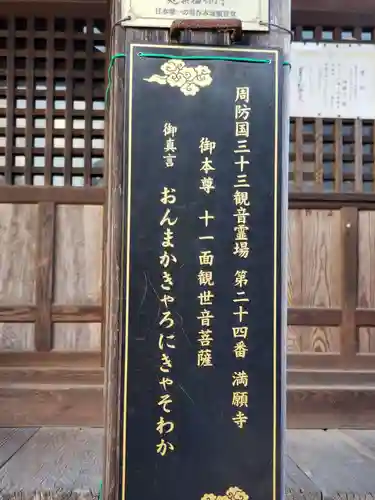 周防国三十三観音霊場 第二十四番 満願寺
御本尊 十一面観世音菩薩
御真言 おんまかきゃろにきゃそわか